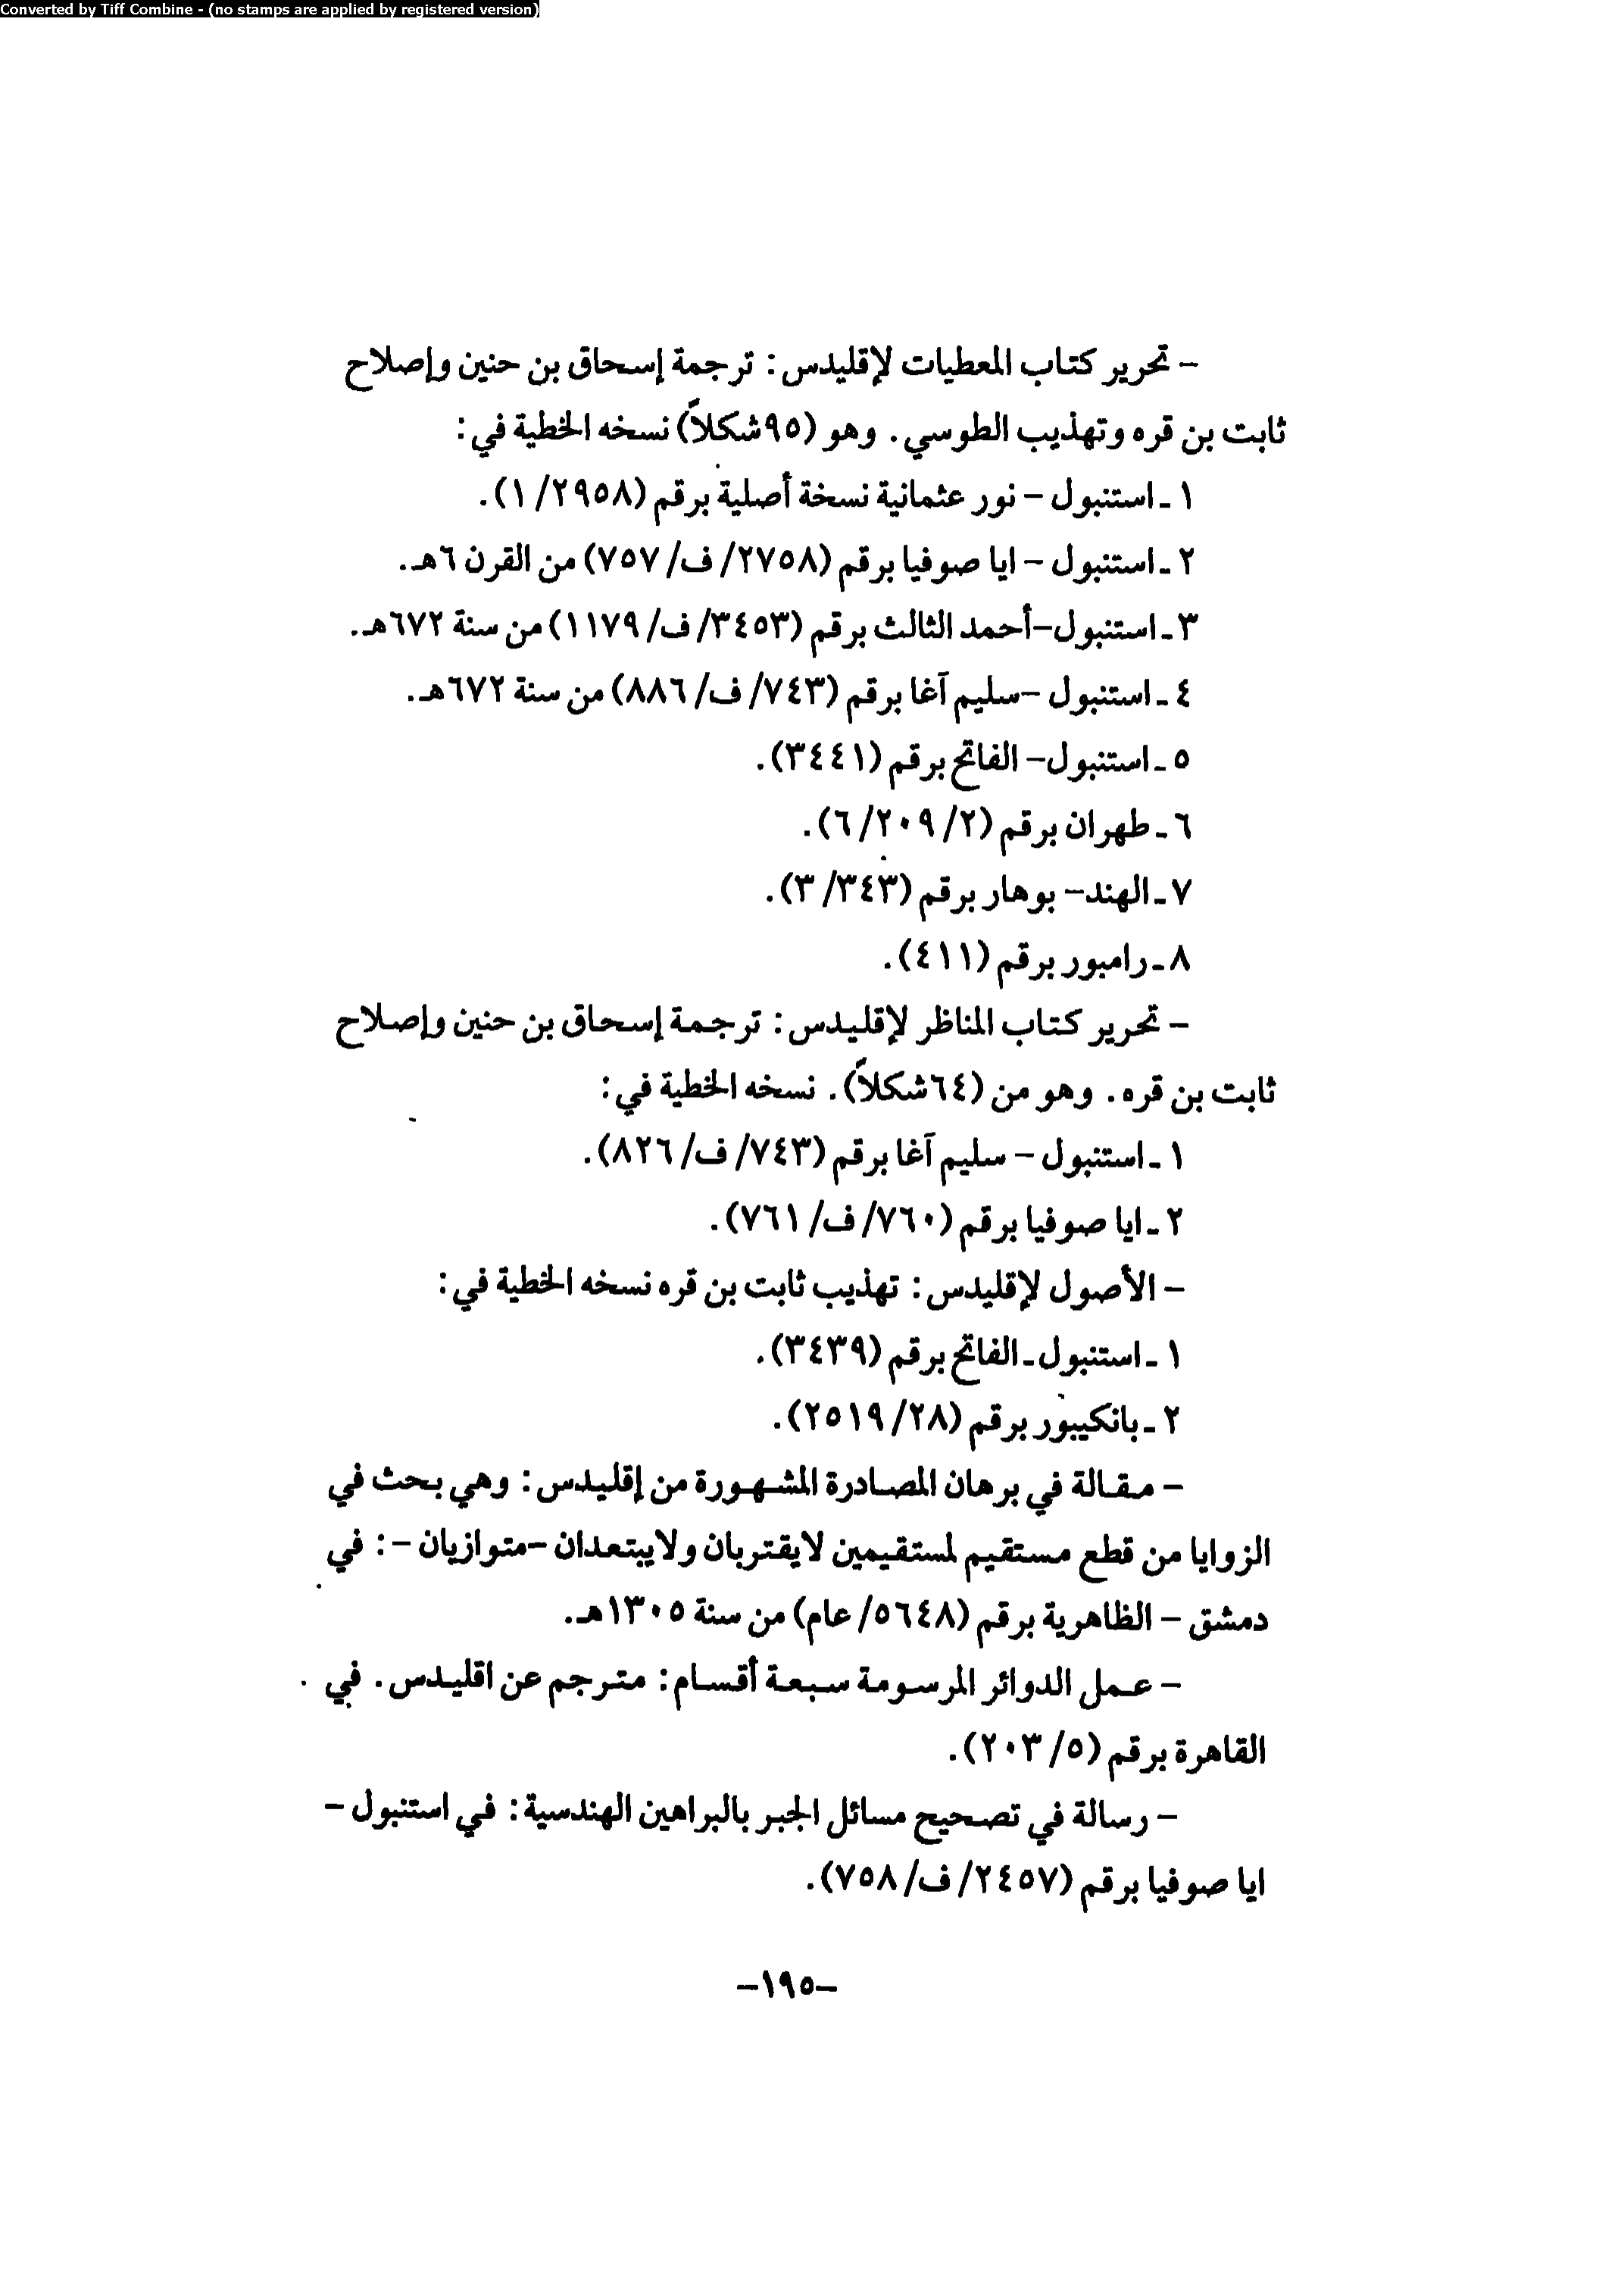 Converted by Tiff Combine - (no stamps are applied by registered version)
- تحرير كتاب المعطيات لإقليدس: ترجمة إسحاق بن حنين وإصلاح
ثابت بن قره وتهذيب الطوسي. وهو (٩٥شكلاً) نسخه الخطية في:
١ ـ استنبول - نور عثمانية نسخة أصلية برقم (٢٩٥٨/ ١).
٢ ـ استنبول - ايا صوفيا برقم (٢٧٥٨/ ف/ ٧٥٧) من القرن ٦هـ.
٣ ـ استنبول-أحمد الثالث برقم (٣٤٥٣/ ف/ ١١٧٩) من سنة ٦٧٢هـ.
٤ ـ استنبول -سليم آغا برقم (٧٤٣/ ف/ ٨٨٦) من سنة ٦٧٢هـ.
٥ ـ استنبول- الفاتح برقم (٣٤٤١).
٦ ـ طهران برقم (٢/ ٢٠٩/ ٦).
٧ ـ الهند- بوهار برقم (٣٤٣/ ٣).
٨ ـ رامبور برقم (٤١١).
- تحرير كتاب المناظر لإقليدس: ترجمة إسحاق بن حنين وإصلاح
ثابت بن قره. وهو من (٦٤شكلاً). نسخه الخطية في:
١ ـ استنبول - سليم آغا برقم (٧٤٣/ ف/ ٨٢٦).
٢ ـ ايا صوفيا برقم (٧٦٠/ ف/ ٧٦١).
- الأصول لإقليدس: تهذيب ثابت بن قره نسخه الخطية في:
١ ـ استنبول ـ الفاتح برقم (٣٤٣٩).
٢ ـ بانكيبور برقم (٢٨/ ٢٥١٩).
- مقالة في برهان المصادرة المشهورة من إقليدس: وهي بحث في
الزوايا من قطع مستقيم لمستقيمين لايقتربان ولايبتعدان -متوازيان -: في
دمشق - الظاهرية برقم (٥٦٤٨/ عام) من سنة ١٣٠٥هـ.
- عمل الدوائر المرسومة سبعة أقسام: مترجم عن اقليدس. في
القاهرة برقم (٥/ ٢٠٣).
- رسالة في تصحيح مسائل الجبر بالبراهين الهندسية: في استنبول -
ايا صوفيا برقم (٢٤٥٧/ ف/ ٧٥٨).
-١٩٥-